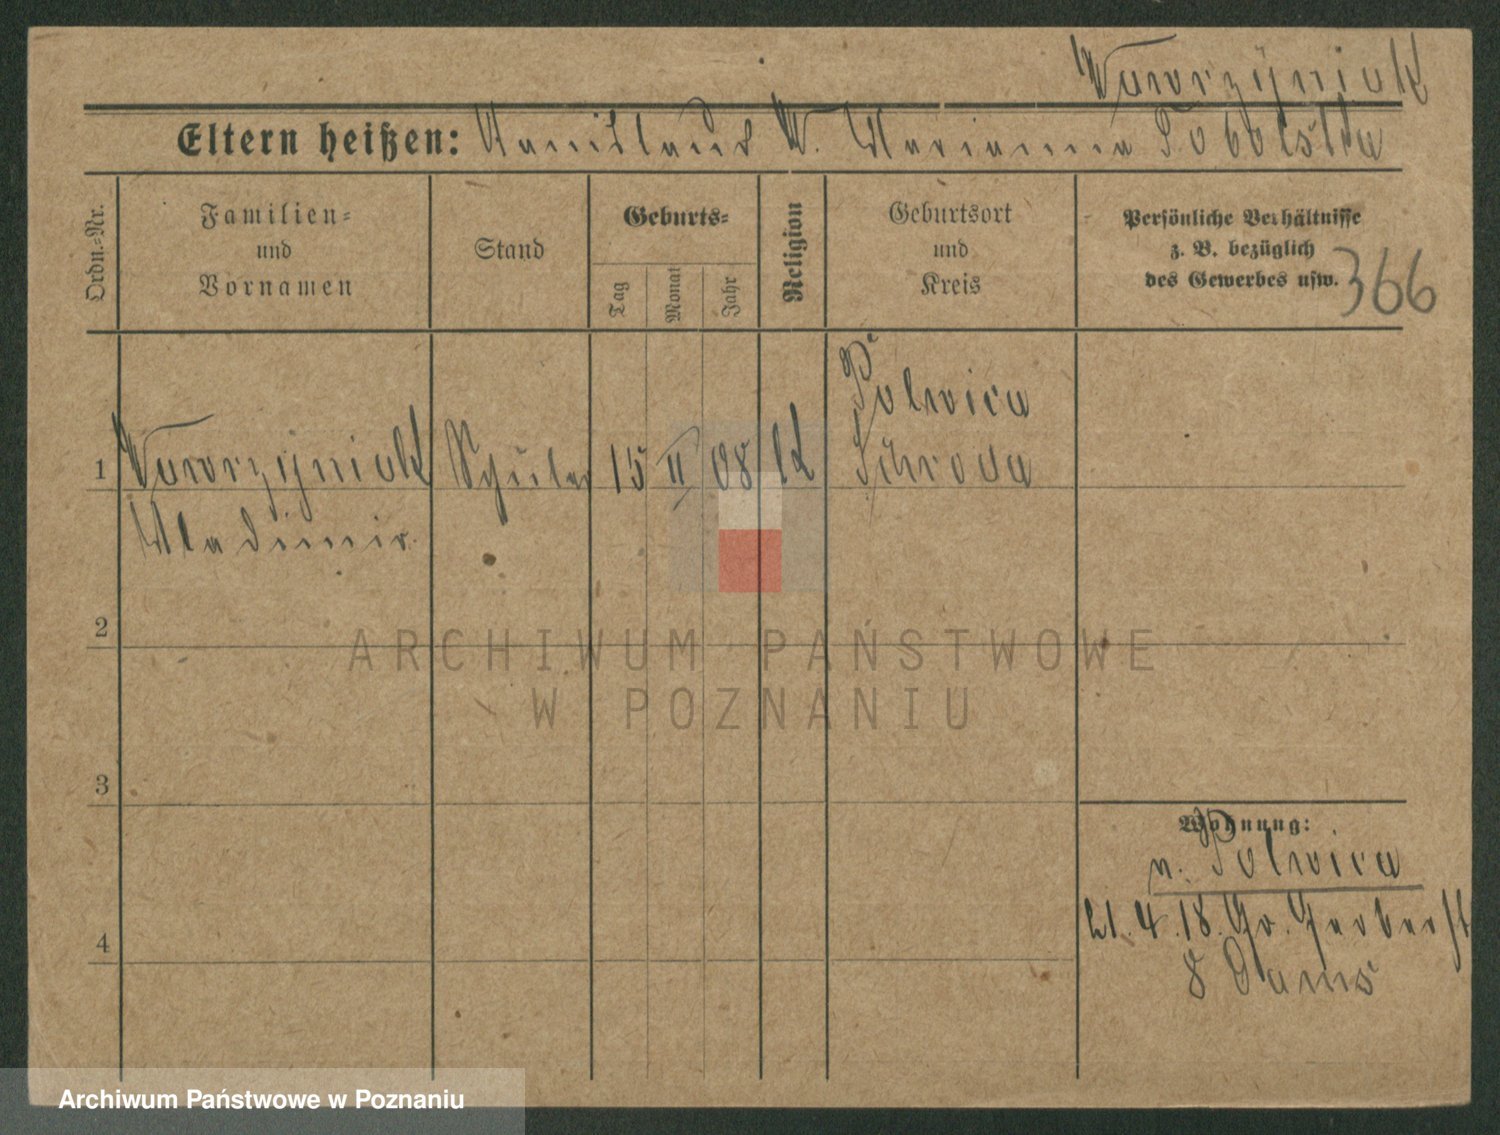 Wawrzyniak
Eltern heißen: Stanislaus W. Marianna Tobolska
Ordn.=Nr.
Familien=
und
Vornamen
Stand
Geburts=
Tag
Monat
Jahr
Religion
Geburtsort
und
Kreis
Persönliche Verhältnisse
z. B. bezüglich
des Gewerbes usw.
366
1
Wawrzyniak
Wladimir
Schüler
15
II
08
k
Polwica
Schroda
2
3
4
Wohnung:
v. Polwica
21.4.18. Gr. Gerberst
8
ARCHIWUM PAŃSTWOWE
W POZNANIU
Archiwum Państwowe w Poznaniu